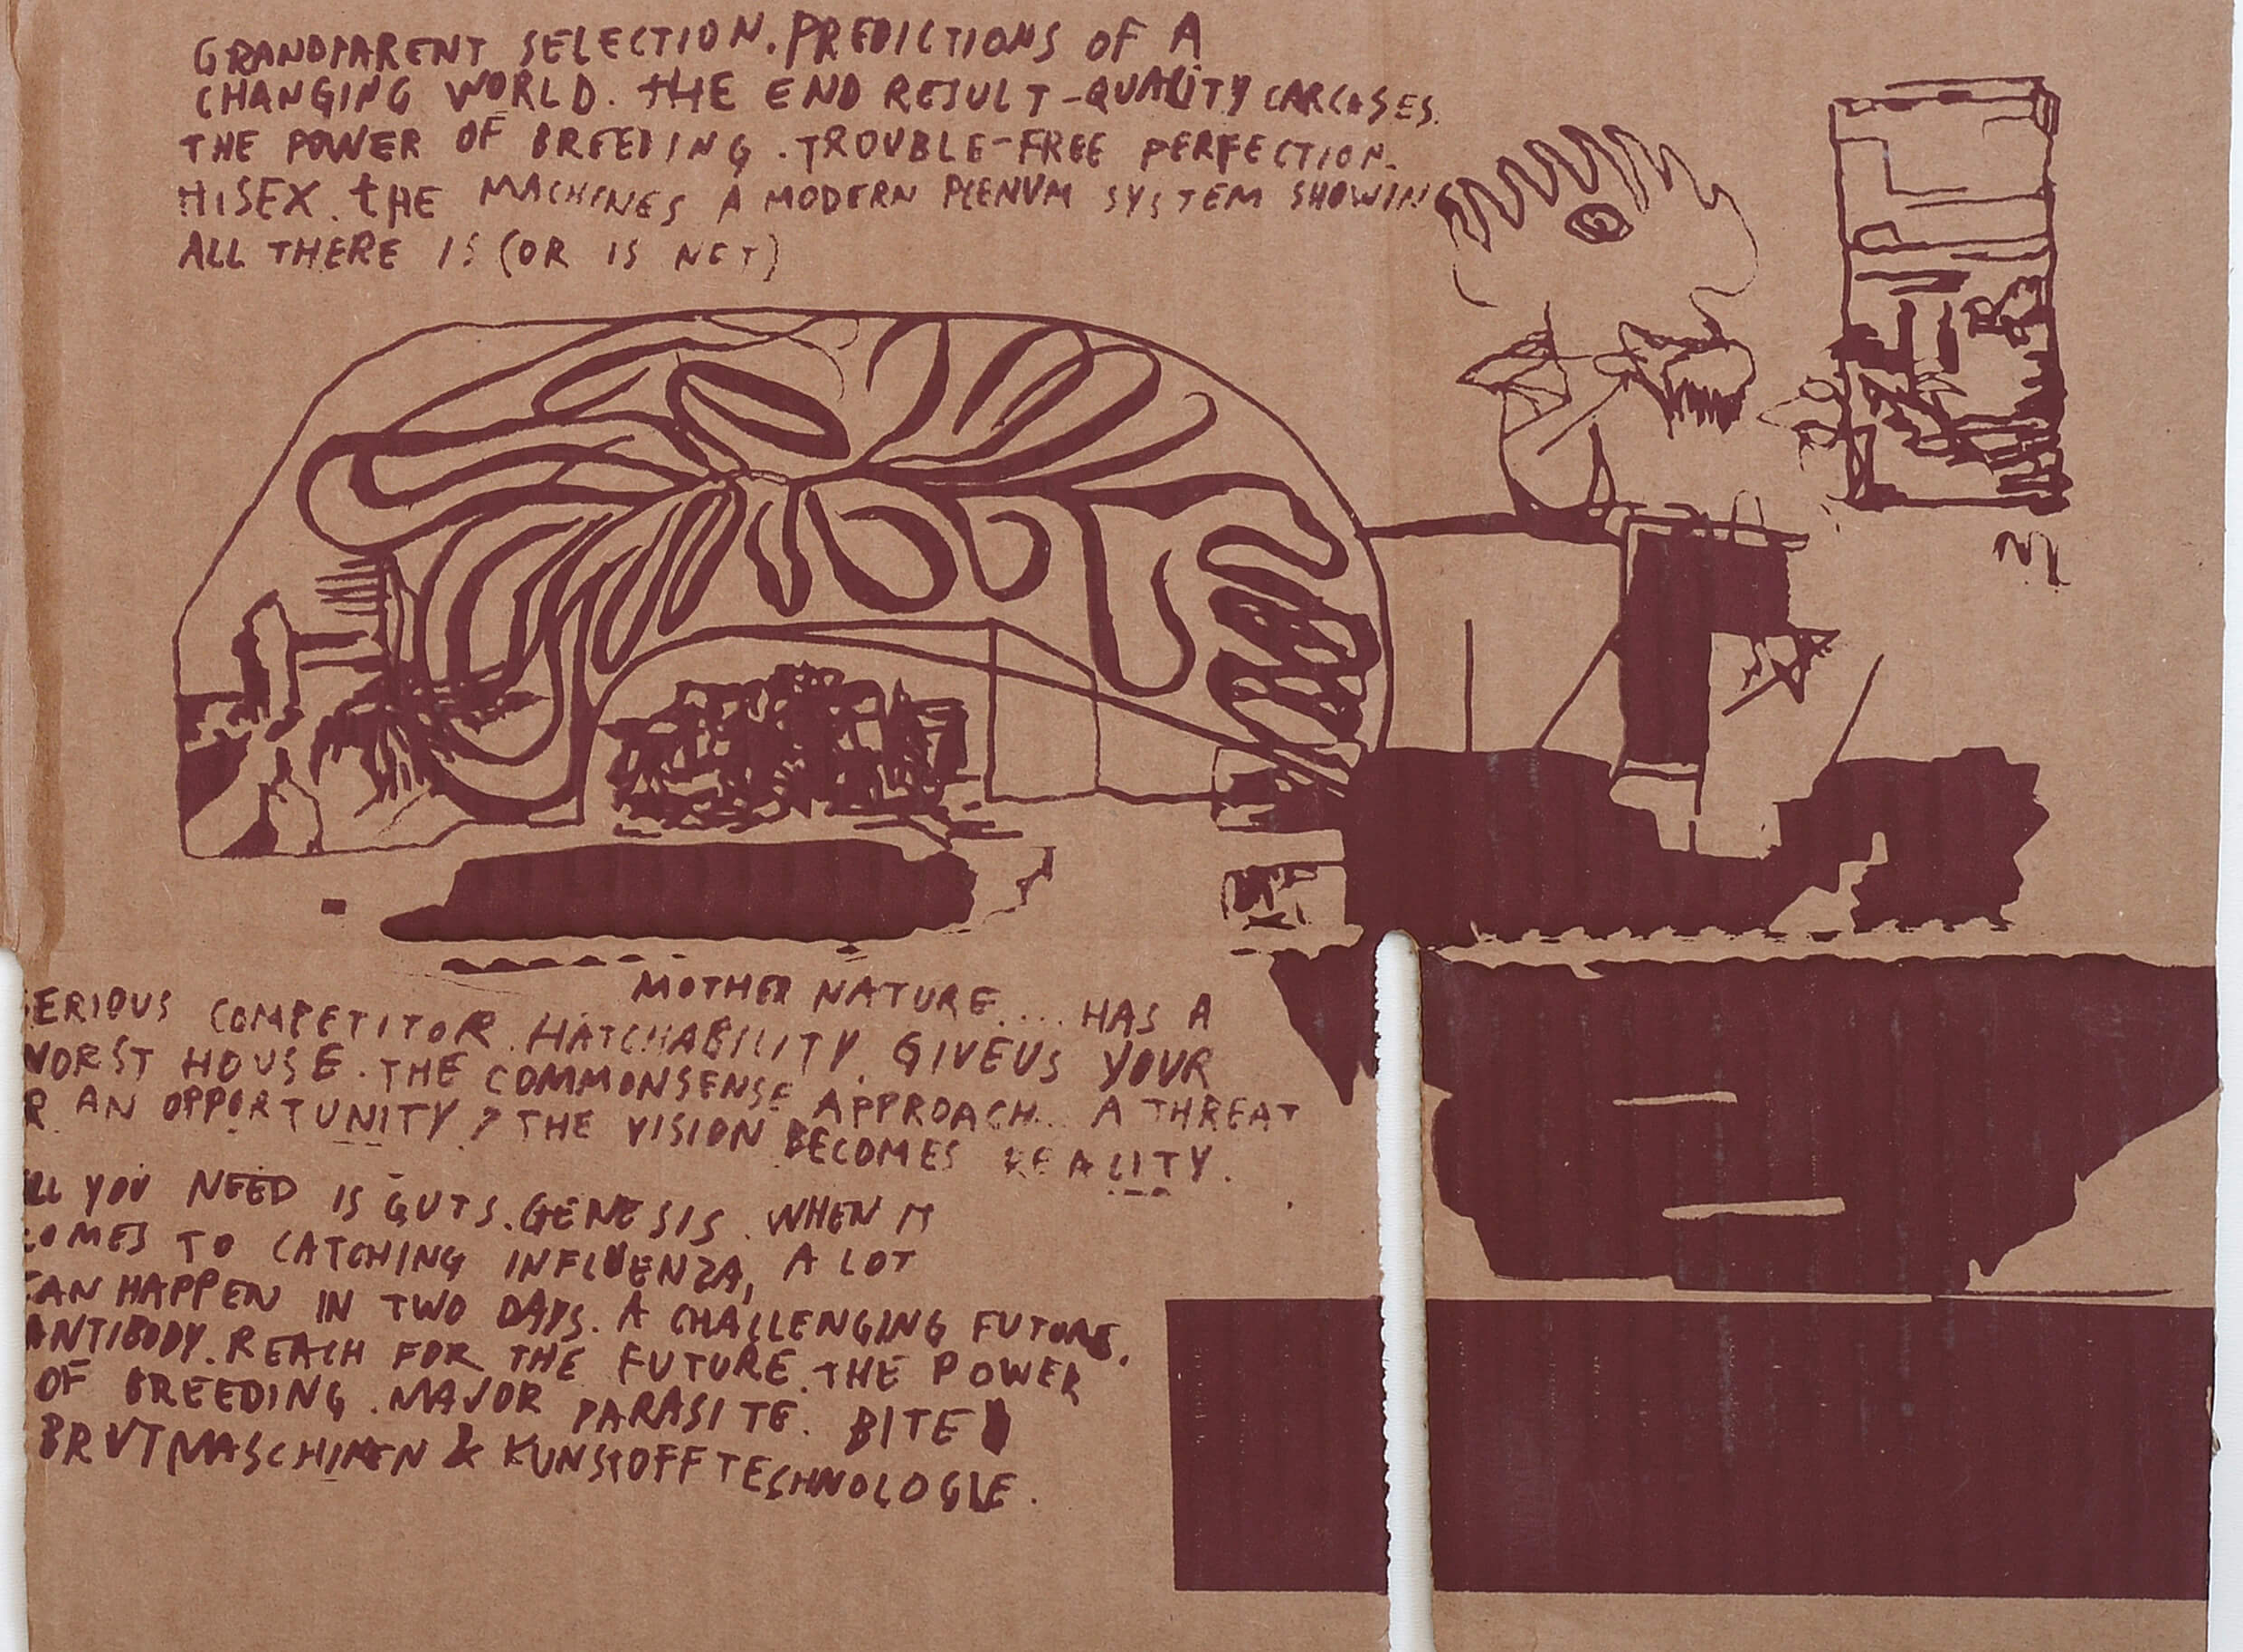 GRANDPARENT SELECTION. PREDICTIONS OF A
CHANGING WORLD. THE END RESULT - QUALITY CARCASES.
THE POWER OF BREEDING. TROUBLE-FREE PERFECTION.
HISEX. THE MACHINES A MODERN PLENUM SYSTEM SHOWING
ALL THERE IS (OR IS NOT)
MOTHER NATURE.... HAS A
SERIOUS COMPETITOR. HATCHABILITY. GIVE US YOUR
WORST HOUSE. THE COMMONSENSE APPROACH. A THREAT
OR AN OPPORTUNITY? THE VISION BECOMES REALITY.
ALL YOU NEED IS GUTS. GENESIS. WHEN IT
COMES TO CATCHING INFLUENZA, A LOT
CAN HAPPEN IN TWO DAYS. A CHALLENGING FUTURE.
ANTIBODY. REACH FOR THE FUTURE. THE POWER
OF BREEDING. MAJOR PARASITE. BITE
BRUTMASCHINEN & KUNSTOFFTECHNOLOGIE.